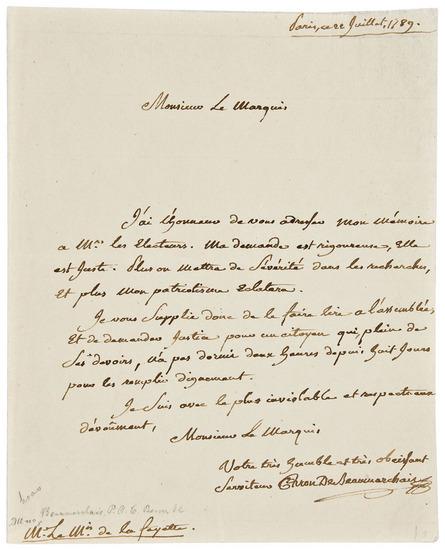 Paris, ce 22 Juillet, 1789.
Monsieur Le Marquis
J'ai l'honneur de vous adresser mon mémoire
a Mrs les Electeurs. Ma demande est rigoureuse, Elle
est Juste. Plus on mettra de Sévérité dans les recherches,
Et plus mon patriotisme Eclatera.
Je vous Supplie donc de la faire lire a l'assemblée,
Et de demander Justice pour un citoyen qui, plein de
Ses devoirs, n'a pas dormi deux heures depuis huit Jours
pour les remplir dignement.
Je Suis avec le plus inviolable et respectueux
dévoûment,
Monsieur Le Marquis
Votre très humble et très obeissant
Serviteur Caron De Beaumarchais
Beaumarchais, P. A. C.
Mr Le Mis de la fayette.